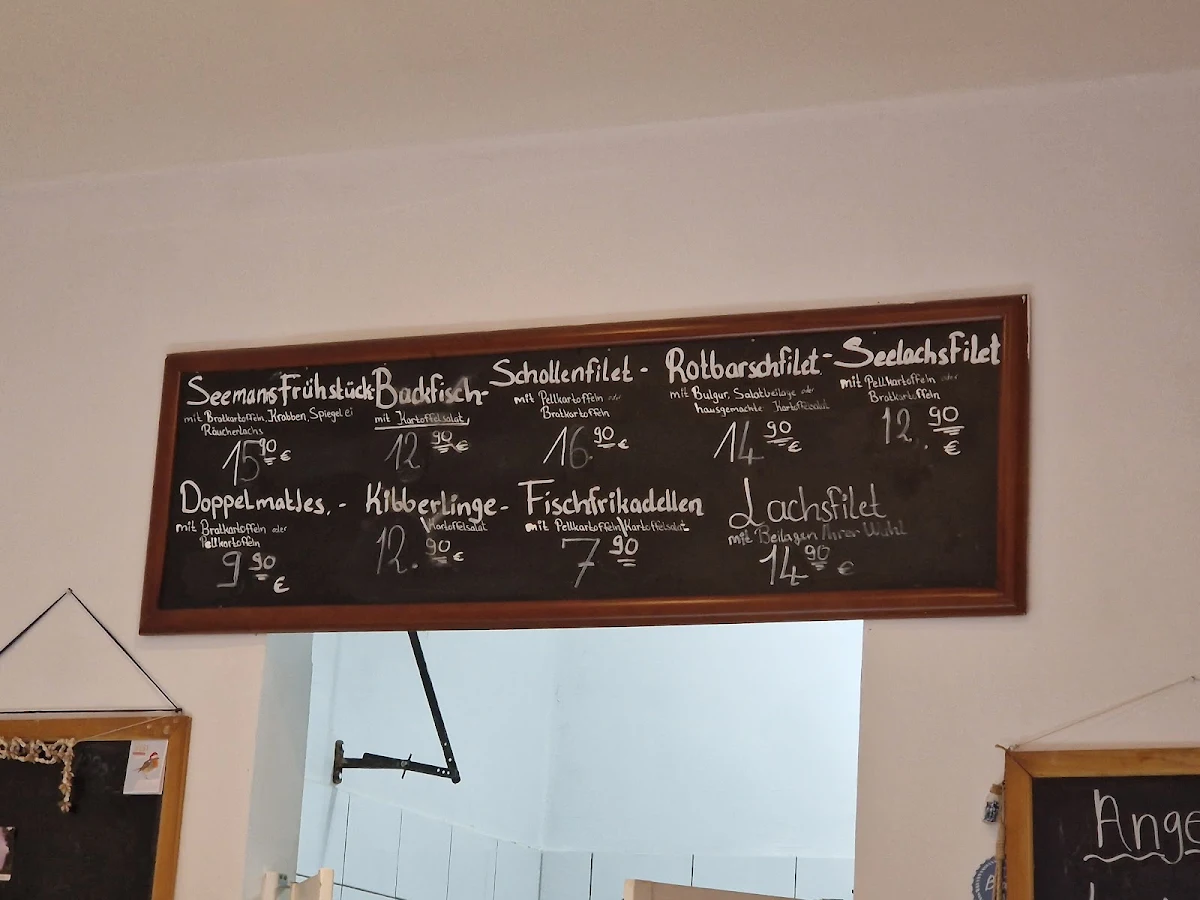 SeemansFrühstück-
mit Bratkartoffeln, Krabben, Spiegelei
Räucherlachs
15,90 €
Backfisch-
mit Kartoffelsalat
12 90 €
Schollenfilet -
mit Pellkartoffeln oder
Bratkartoffeln
16. 90 €
Rotbarschfilet-
mit Bulgur, Salatbeilage oder
hausgemachte Kartoffelsalat
14 90 €
Seelachsfilet
mit Pellkartoffeln oder
Bratkartoffeln
12. 90 €
Doppelmatjes, -
mit Bratkartoffeln oder
Pellkartoffeln
9 90 €
Kibberlinge-
Kartoffelsalat
12. 90 €
Fischfrikadellen
mit Pellkartoffeln/Kartoffelsalat
7 90
Lachsfilet
mit Beilagen Ihrer Wahl
14 90 €
Ange